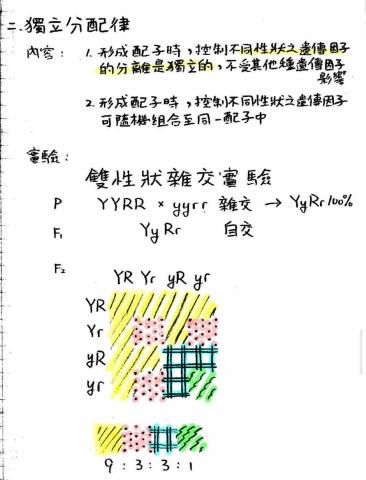 二.獨立分配律
內容: 1. 形成配子時,控制不同性狀之遺傳因子
的分離是獨立的,不受其他種遺傳因子
影響
2. 形成配子時,控制不同性狀之遺傳因子
可隨機組合至同一配子中
實驗:
雙性狀雜交實驗
P YYRR × yyrr 雜交 → YyRr 100%
F₁ YyRr 自交
F₂
YR Yr yR yr
YR
Yr
yR
yr
9 : 3 : 3 : 1